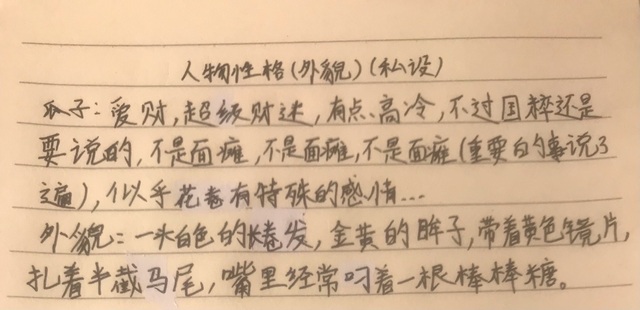 人物性格(外貌)(私设)
瓜子:爱财,超级财迷,有点高冷,不过国粹还是
要说的,不是面瘫,不是面瘫,不是面瘫(重要的事说3
遍),似乎花卷有特殊的感情...
外貌:一头白色的长发,金黄的眸子,带着黄色镜片,
扎着半截马尾,嘴里经常叼着一根棒棒糖。